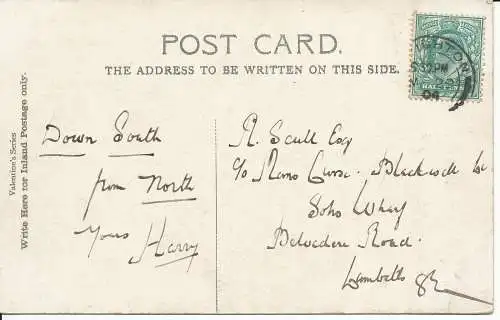 POST CARD.
THE ADDRESS TO BE WRITTEN ON THIS SIDE.
Valentine's Series
Write Here for Inland Postage only.
Down South
from North
Yours Harry
R. Scull Esq
c/o Blackwell
Soho Wharf
Belvedere Road.
Lambeth SE
GHTON
PM
06